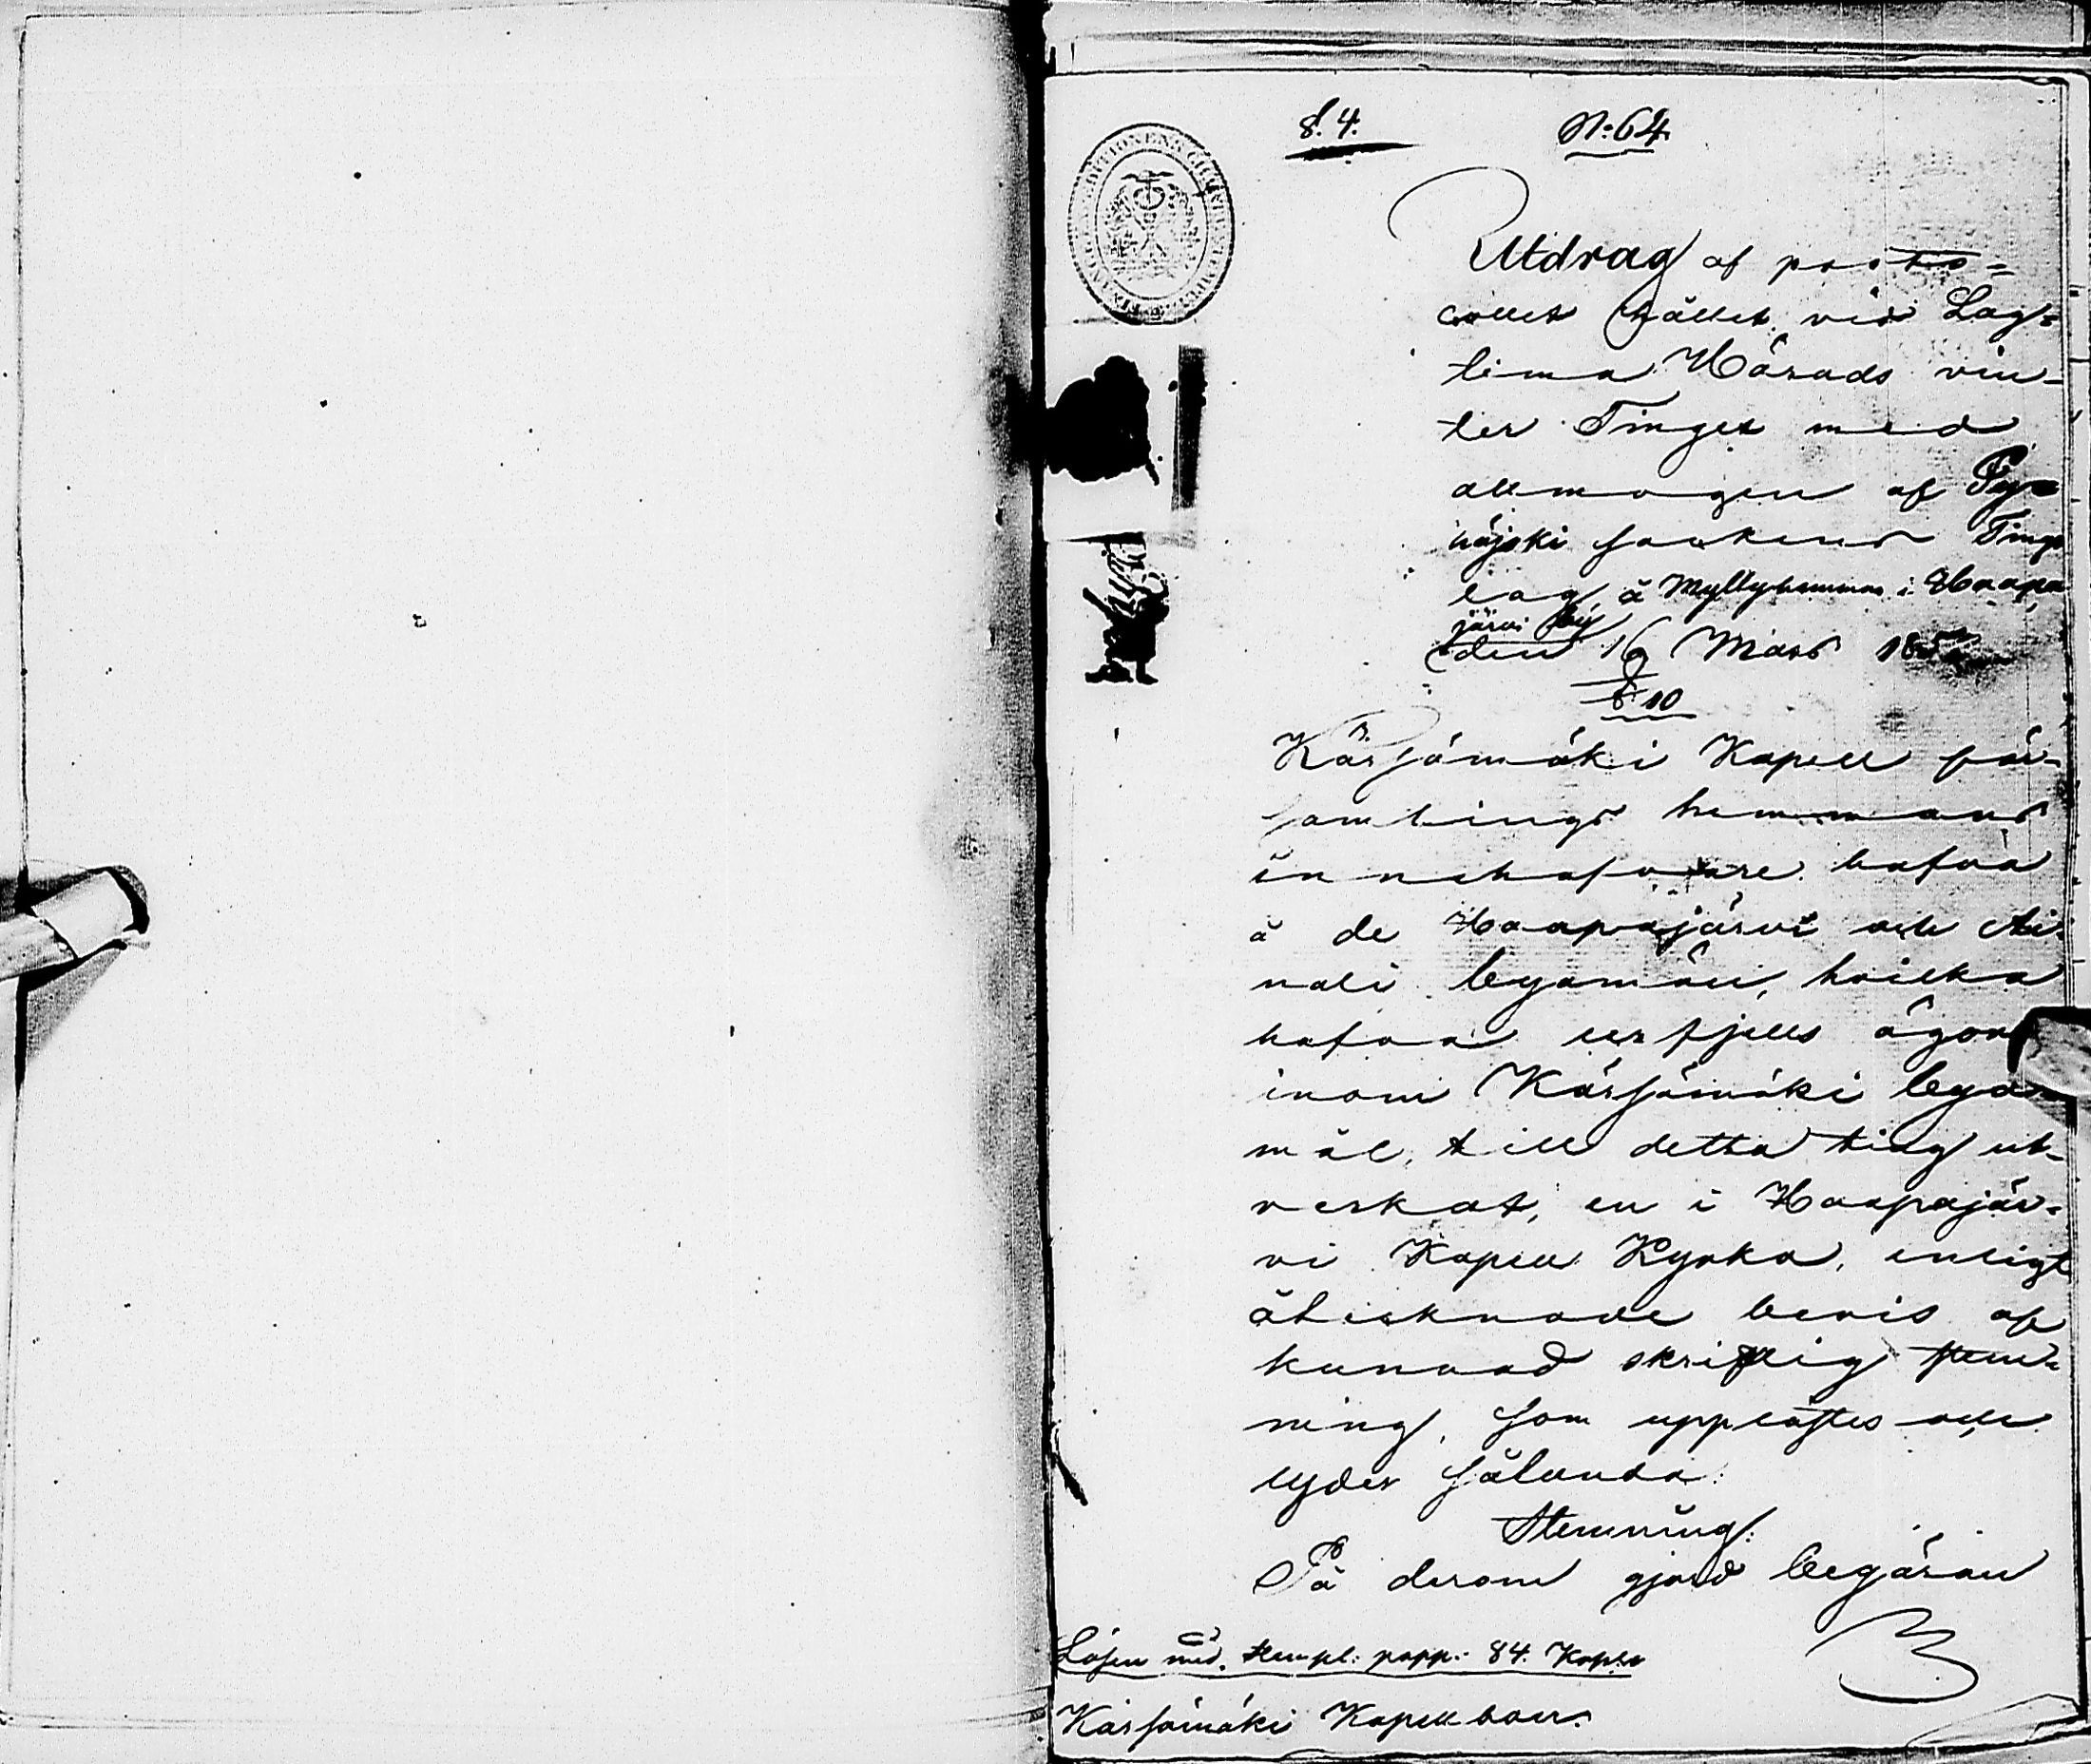 8. 4. N:o 64
Utdrag af proto=
collet hållet vid Lag=
tima Härads vin-
ter Tinget med
allmogen af Py=
häjoki sockens Tings
lag å Myllyhemman i Haapa
järvi by
den 16 Mars
§ 10
Kärsämäki Kapell för-
samlings hemmans
innehafvare hafva
å de Haapajärvi och Ai-
nali byamän, hvilka
hafva urfjells ägor
inom Kärsämäki bya-
mål, till detta ting ut-
verkat, en i Haapajär-
vi Kapell Kyrka, enligt
åtecknade bevis af
kunnad skriftlig stem-
ning, som upplästes och
lyder sålunda:
Stemning:
På derom gjord begäran
Lösen med stempl: papp: 84. Kop:r
Kärsämäki Kapellboer.